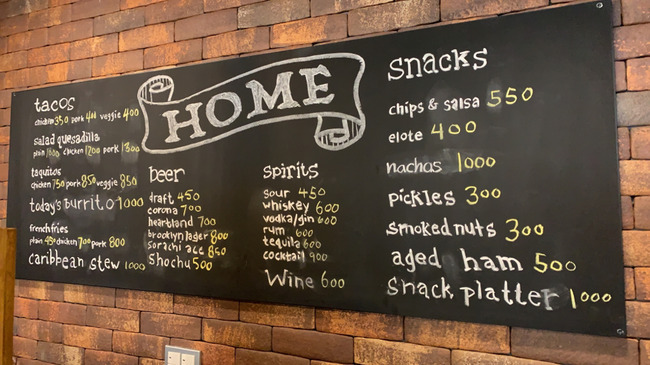 HOME
tacos
chicken 350 pork 400 veggie 400
salad quesadilla
chicken 1200 pork 1300
taquitos
chicken 750 pork 850 veggie 850
today's burrito 1000
french fries
plain 450 chicken 700 pork 800
caribbean stew 1000
beer
draft 450
corona 700
heartland 700
brooklyn lager 800
sorachi ace 850
Shochu 500
spirits
sour 450
whiskey 600
vodka/gin 600
rum 600
tequila 600
cocktail 900
Wine 600
snacks
chips & salsa 550
elote 400
nachos 1000
pickles 300
smoked nuts 300
aged ham 500
Snack platter 1000